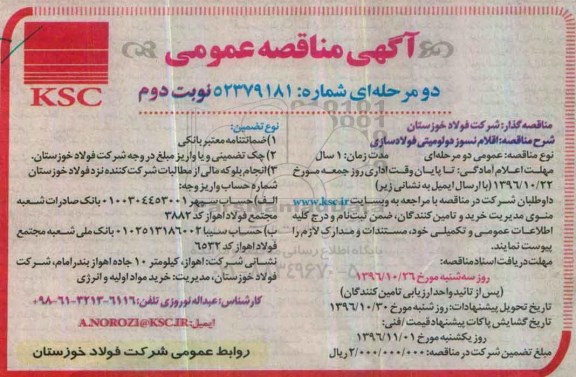 آگهی مناقصه عمومی
دو مرحله‌ای شماره: ۵۲۳۷۹۱۸۱ نوبت دوم
KSC
مناقصه گذار: شرکت فولاد خوزستان
شرح مناقصه: اقلام نسوز دولومیتی فولادسازی
نوع مناقصه: عمومی دو مرحله‌ای مدت زمان: ۱ سال
مهلت اعلام آمادگی: تا پایان وقت اداری روز جمعه مورخ
۱۳۹۶/۱۰/۲۲ (با ارسال ایمیل به نشانی زیر)
داوطلبان شرکت در مناقصه با مراجعه به وبسایت www.ksc.ir
منوی مدیریت خرید و تامین کنندگان، ضمن ثبت‌نام و درج کلیه
اطلاعات عمومی و تکمیلی خود، مستندات و مدارک لازم را
پیوست نمایند.
مهلت دریافت اسناد مناقصه:
روز سه‌شنبه مورخ ۱۳۹۶/۱۰/۲۶
(پس از تائید واحد ارزیابی تامین کنندگان)
تاریخ تحویل پیشنهادات: روز شنبه مورخ ۱۳۹۶/۱۰/۳۰
تاریخ گشایش پاکات پیشنهاد قیمت/فنی:
روز یکشنبه مورخ ۱۳۹۶/۱۱/۰۱
مبلغ تضمین شرکت در مناقصه: ۲/۰۰۰/۰۰۰/۰۰۰ ریال
نوع تضمین:
۱) ضمانتنامه معتبر بانکی
۲) چک تضمینی و یا واریز مبلغ در وجه شرکت فولاد خوزستان.
۳) انجام بلوکه مالی از مطالبات شرکت کننده نزد فولاد خوزستان
شماره حساب واریز وجه:
الف) حساب سپهر ۰۱۰۰۳۰۴۴۵۳۰۰۱ بانک صادرات شعبه
مجتمع فولاد اهواز کد ۳۸۸۲
ب) حساب سیبا ۰۱۰۲۵۱۳۱۸۶۰۰۲ بانک ملی شعبه مجتمع
فولاد اهواز کد ۶۵۳۲
نشانی شرکت: اهواز، کیلومتر ۱۰ جاده اهواز بندرامام، شرکت
فولاد خوزستان، مدیریت: خرید مواد اولیه و انرژی
کارشناس: عبداله نوروزی تلفن: ۰۹۸-۶۱-۳۲۱۳-۶۱۱۶
ایمیل: A.NOROZI@KSC.IR
روابط عمومی شرکت فولاد خوزستان